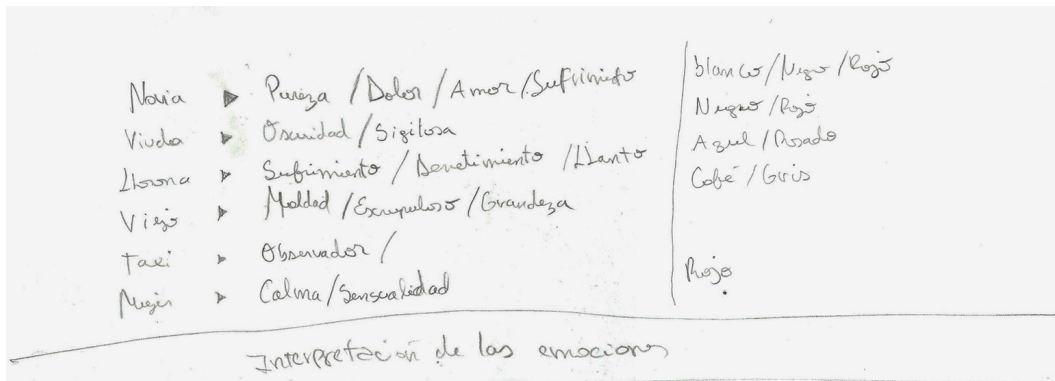 Novia ▶ Pureza / Dolor / Amor / Sufrimiento | blanco / Negro / Rojo
Viuda ▶ Oscuridad / Sigilosa | Negro / Rojo
Llorona ▶ Sufrimiento / / Llanto | Azul / Rosado
Viejo ▶ Maldad / Escrupuloso / Grandeza | Café / Gris
Taxi ▶ Observador /
Mujer ▶ Calma / Sensualidad | Rojo
Interpretación de las emociones